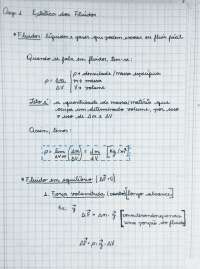 Cap. 1 Estática dos Fluidos
* Fluidos: líquidos e gases que podem escoar ou fluir fácil
Quando se fala em fluidos, tem-se:
ρ = Δm / ΔV
ρ → densidade / massa específica
m → massa
V → volume
Isto é a quantidade de massa/matéria que
ocupa um determinado volume, por isso
o uso de Δm e ΔV
Assim, temos:
ρ = lim ΔV→0 (Δm / ΔV) = dm / dV [kg/m³]
* Fluidos em equilíbrio
1. Força volumétrica (contato) [longo alcance]
Ex: g
ΔF = Δm · g
ΔF = ρ · g · ΔV